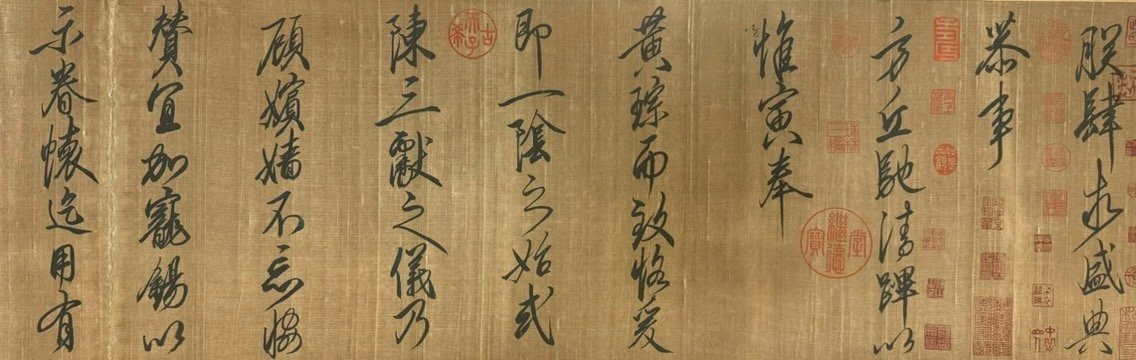 朕肆求盛典
恭事
方丘馳清蹕以
惟寅奉
黃琮而致恪爰
即一陰之始式
陳三獻之儀乃
顧嬪嬙不忘協
贊宜加寵錫以
示眷懷迄用有
古希天子